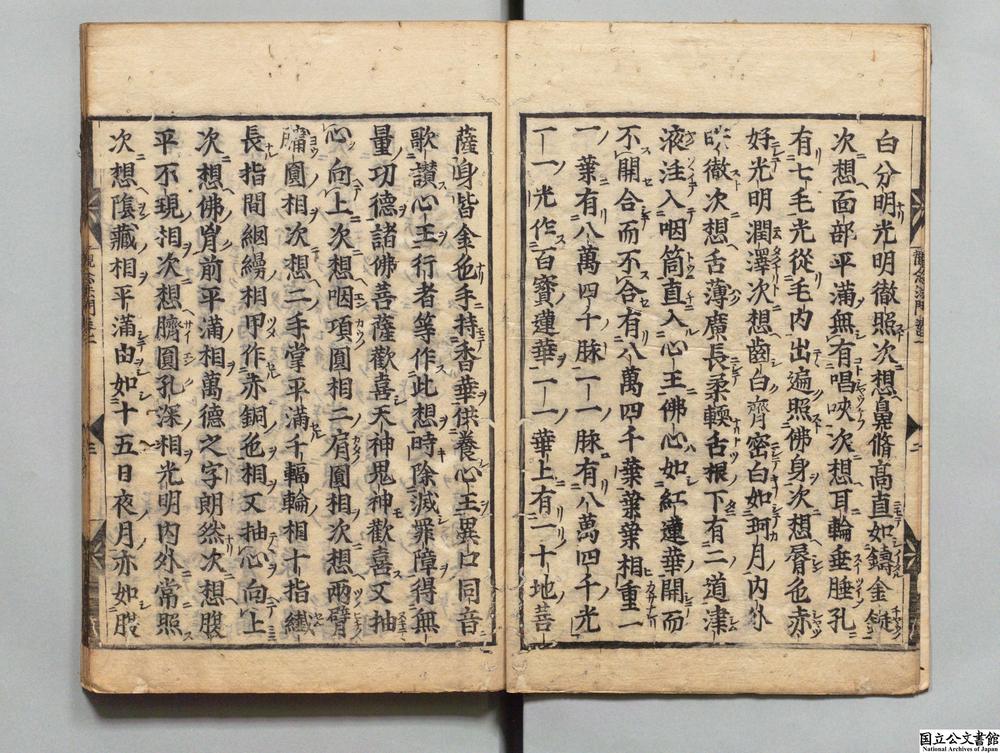 白分明光明徹照次想鼻脩高直如鑄金鋌
次想面部平滿無有唱唊次想耳輪垂埵孔
有七毛光從毛內出遍照佛身次想脣色赤
好光明潤澤次想齒白齊密白如珂月內外
映徹次想舌薄廣長柔輭舌根下有二道津
液注入咽筒直入心王佛心如紅蓮華開而
不開合而不合有八萬四千葉葉葉相重一
一葉有八萬四千脉一一脉有八萬四千光
一一光作百寶蓮華一一華上有一十地菩
薩身皆金色手持香華供養心王異口同音
歌讃心王行者等作此想時除滅罪障得無
量功德諸佛菩薩歡喜天神鬼神歡喜又抽
心向上次想咽項圓相二肩圓相次想兩臂
𦟛圓相次想二手掌平滿千輻輪相十指纎
長指間網縵相甲作赤銅色相又抽心向上
次想佛胷前平滿相萬德之字朗然次想腹
平不現相次想臍圓孔深相光明內外常照
次想陰藏相平滿由如十五日夜月亦如腹
觀念法門
国立公文書館
National Archives of Japan